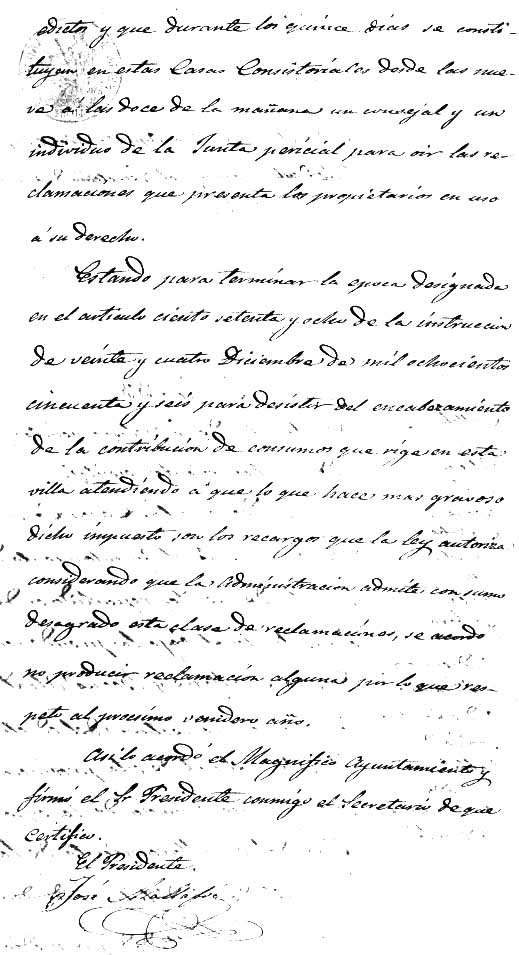 edictos y que durante los quince dias se consti-
tuyan en estas Casas Consistoriales desde las nue-
ve á las doce de la mañana un concejal y un
individuo de la Junta pericial para oir las re-
clamaciones que presenta los propietarios en uso
á su derecho.
Estando para terminar la epoca designada
en el articulo ciento setenta y ocho de la instruccion
de veinte y cuatro Diciembre de mil ochocientos
cincuenta y seis para desistir del encabezamiento
de la contribucion de consumos que rige en esta
villa atendiendo á que lo que hace mas gravoso
dicho impuesto son los recargos que la ley autoriza
considerando que la Administracion admite con sumo
desagrado esta clase de reclamaciones, se acordo
no producir reclamación alguna por lo que res-
peto al procsimo venidero año.
Asi lo acordó el Magnifico Ayuntamiento y
firmó el Sr Presidente conmigo el Secretario de que
certifico.
El Presidente.
José